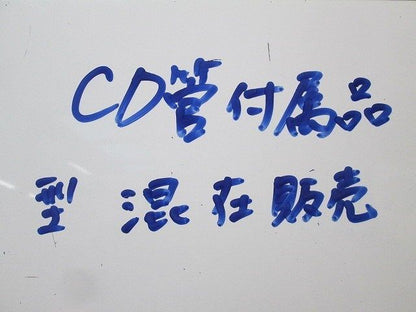 CD管付属品
型 混在販売